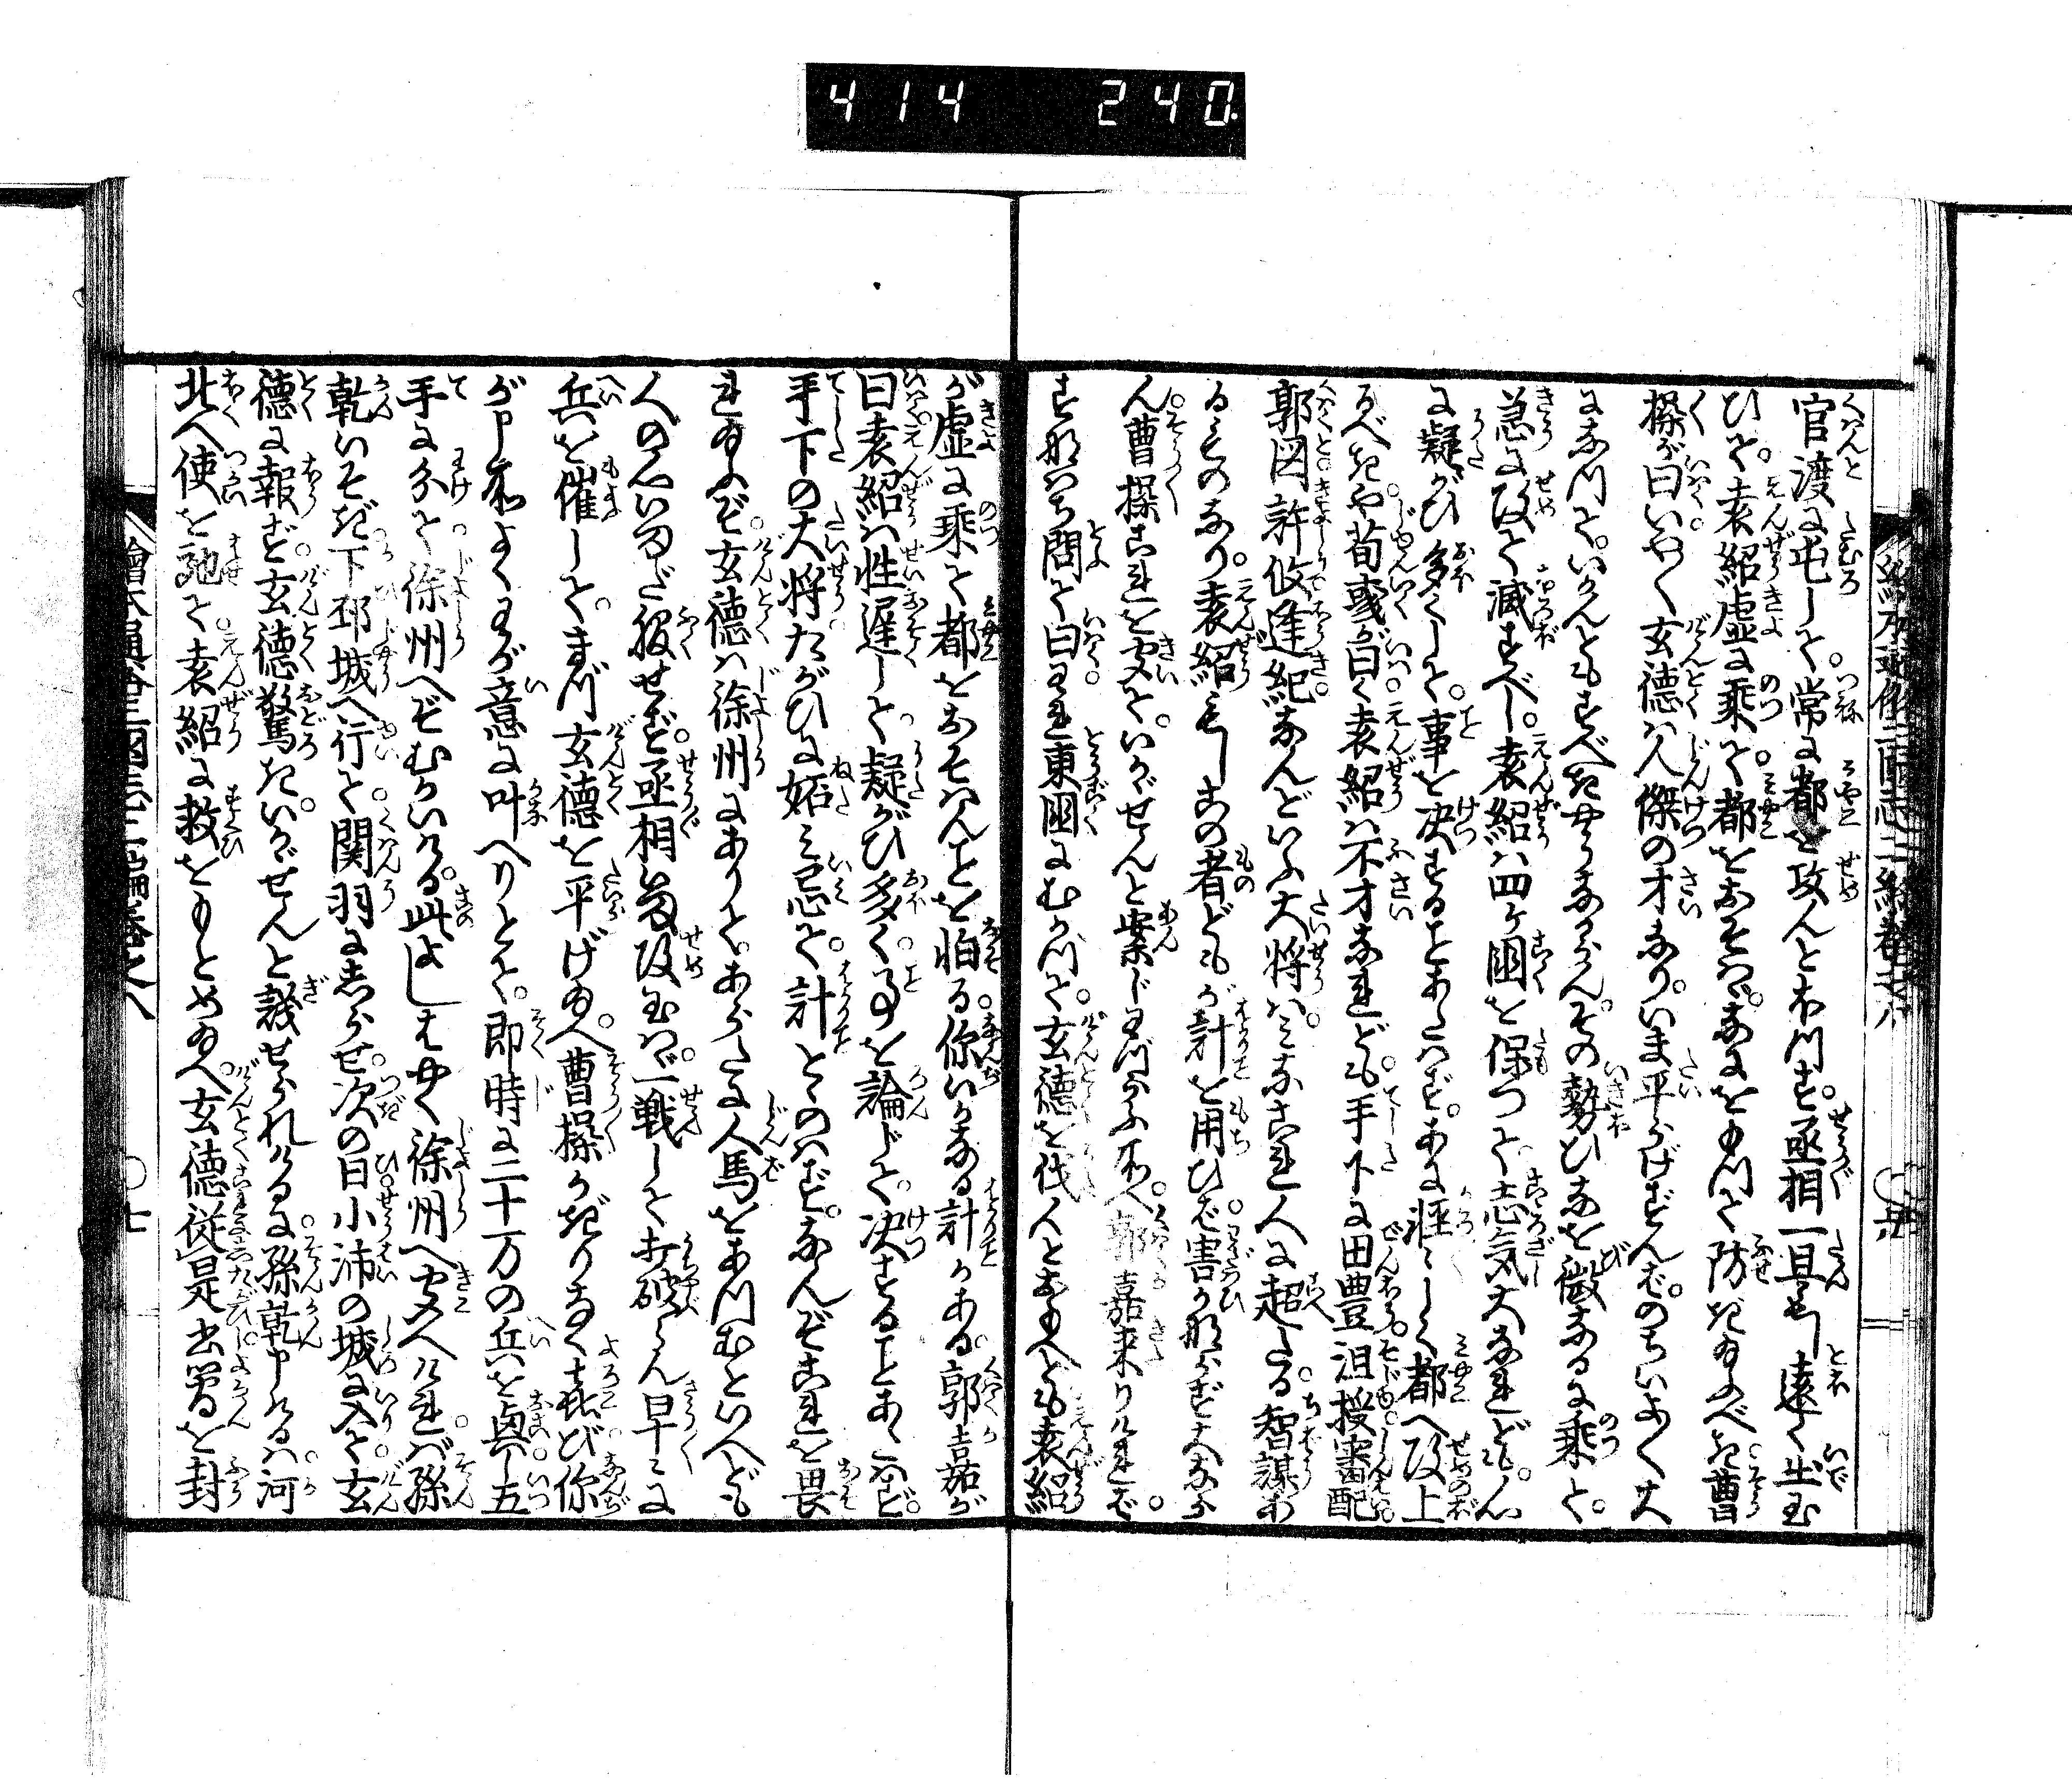 414 240
官渡に屯して常に都を攻んとほつす丞相一旦に遠く出玉
ひて袁紹虚に乗て都をおそはゞなにをもつて防ぎ給ふべき曹
操が曰いやく玄德は人傑の才なりいま平らげずんばのちいよく大
になつていかんともすべきやうなからんその勢ひなを微なるに乗て
急に攻て滅すべし袁紹は四ケ國を保つて志気大なれども心
に疑がひ多くして事を决することあたはずあに軽〻しく都へ攻上
るべきや荀彧が曰く袁紹は不才なれども手下に田豊沮授審配
郭図許攸逢紀なんどいふ大将はみなこれ人に超たる智謀あ
るものなり袁紹もしこの者どもが計を用ひば害か那らずすくなから
ん曹操これを聞ていかゞせんと案じわづらふ所へ郭嘉来りければ
すなはち問て曰われ東國にむかつて玄德を伐んとおもへども袁紹
が虚に乗て都をおそはんことを怕る你いかなる計かある郭嘉が
曰袁紹は性遅して疑がひ多く事を論じて决することあたはず
手下の大将たがひに妬み忌て計とゝのはずなんぞこれを畏
れ給ふぞ玄德は徐州にありてあらたに人馬をあつむといへども
人の心いまだ服せず丞相もし攻玉はゞ一戦して打破らん早〻に
兵を催してまづ玄德を平げ給へ曹操かぎりなく喜び你
が申所よくわが意に叶へりとて即時に二十万の兵を興し五
手に分て徐州へぞむかいける此よしはやく徐州へ聞へければ孫
乾いそぎ下邳城へ行て関羽にしらせ次の日小沛の城に入て玄
德に報ず玄德驚きいかゞせんと議せられけるに孫乾申けるは河
北へ使を馳て袁紹に救をもとめ給へ玄德従是出簡を封